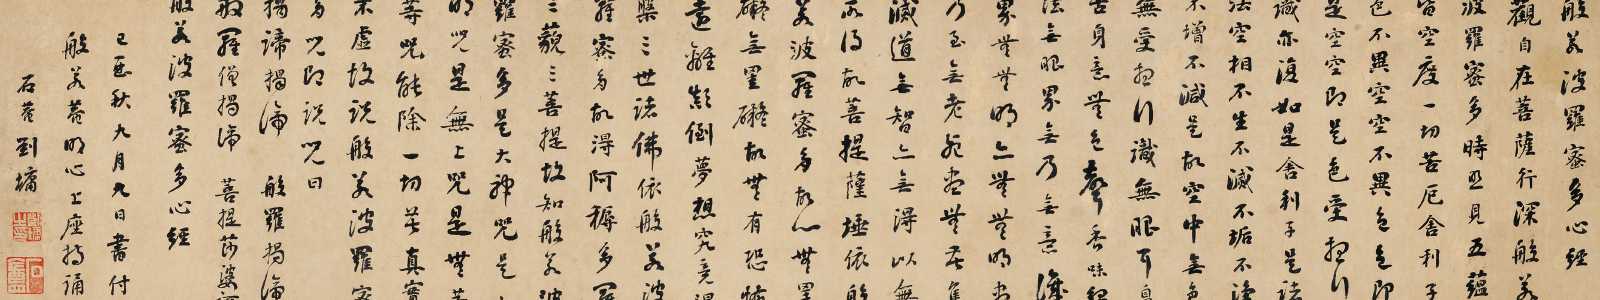 般若波羅蜜多心經
觀自在菩薩行深般若
波羅蜜多時照見五蘊
皆空度一切苦厄舍利子
色不異空空不異色色即
是空空即是色受想行
識亦復如是舍利子是諸
法空相不生不滅不垢不淨
不增不減是故空中無色
無受想行識無眼耳鼻
舌身意無色聲香味觸
法無眼界無乃無意識
界無無明亦無無明盡
乃至無老死盡無苦集
滅道無智亦無得以無
所得故菩提薩埵依般
若波羅蜜多故心無罣
礙無罣礙故無有恐怖
遠離顛倒夢想究竟涅
槃三世諸佛依般若波
羅蜜多故得阿耨多羅
三藐三菩提故知般若波
羅蜜多是大神咒是
明咒是無上咒是無等
等咒能除一切苦真實
不虛故說般若波羅蜜
多咒即說咒曰
揭諦揭諦 般羅揭諦
般羅僧揭諦 菩提莎婆訶
般若波羅蜜多心經
己亥秋九月九日書付
般若菴明心上座持誦
石菴劉墉